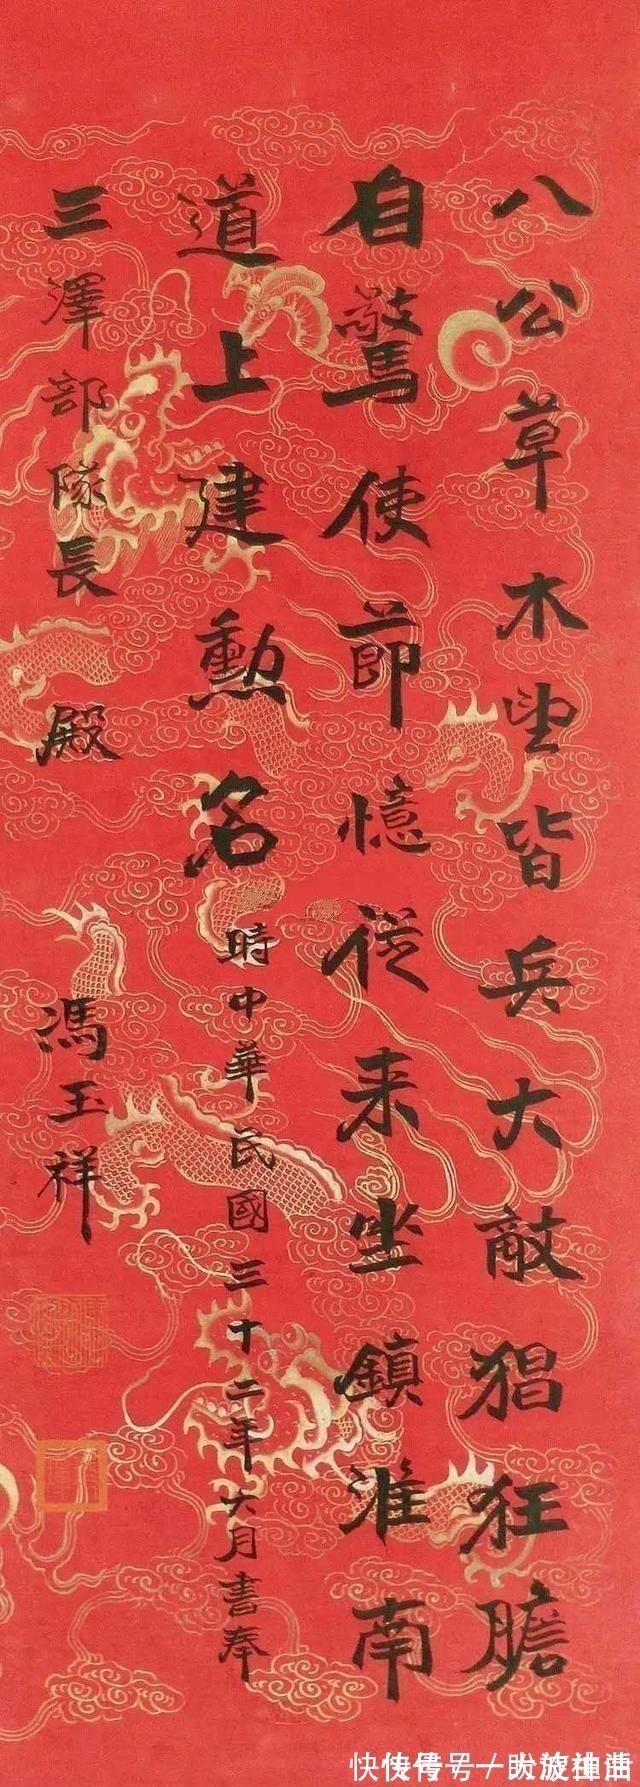 八公草木望皆兵大敵猖狂膽
自驚使節憶從来坐鎮淮南
道上建勳名
時中華民國三十二年六月書奉
三澤部隊長 殿
馮玉祥
快传号